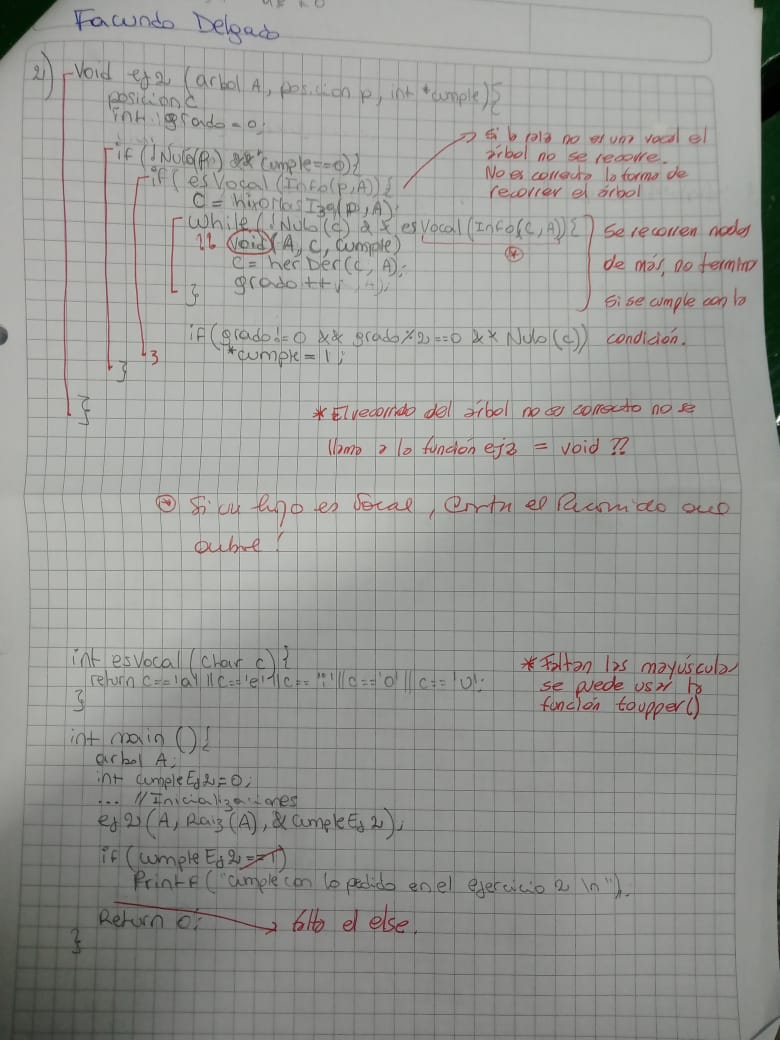 Facundo Delgado
2) void ej2 (arbol A, posicion p, int *cumple){
posicion c
int grado = 0;
if (!Nulo(p) && *cumple==0){
if (esVocal(Info(p,A)){
c = hijoMasIzq(p,A);
while (!Nulo(c) && esVocal(Info(c,A)){
?? void(A, c, cumple)
c = herDer(c, A);
grado++;
}
if(grado!=0 && grado%2==0 && Nulo(c))
*cumple = 1;
}
}
}
Si la raíz no es una vocal el
árbol no se recorre.
No es correcta la forma de
recorrer el árbol
Se recorren nodos
de más, no termina
si se cumple con la
condición.
* El recorrido del árbol no es correcto no se
llama a la función ej2 = void ??
* Si un hijo es Vocal, Corta el Recorrido
int esVocal (char c){
return c=='a' || c=='e' || c=='i' || c=='o' || c=='u';
}
* Faltan las mayúsculas
se puede usar la
función toupper()
int main (){
arbol A;
int cumpleEj2=0;
... //Inicializaciones
ej2(A, Raiz(A), &cumpleEj2);
if (cumpleEj2 ==1)
Printf ("cumple con lo pedido en el ejercicio 2 \n");
Return 0;
}
falta el else.